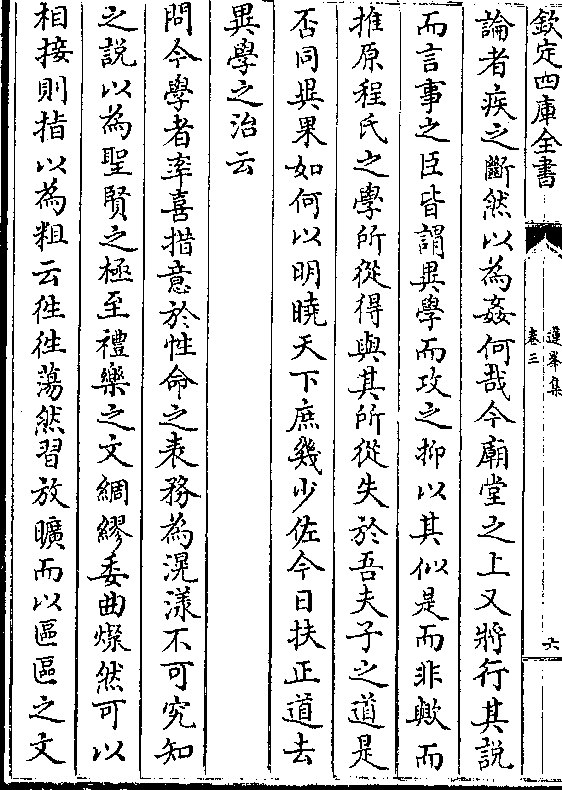 欽定四庫全書
蓮峯集
卷三
六
論者疾之斷然以為姦何哉今廟堂之上又將行其說
而言事之臣皆謂異學而攻之抑以其似是而非歟而
推原程氏之學所從得與其所從失於吾夫子之道是
否同異果如何以明曉天下庶幾少佐今日扶正道去
異學之治云
問今學者率喜措意於性命之表務為滉漾不可究知
之說以為聖賢之極至禮樂之文綢繆委曲燦然可以
相接則指以為粗云徃徃蕩然習放曠而以區區之文